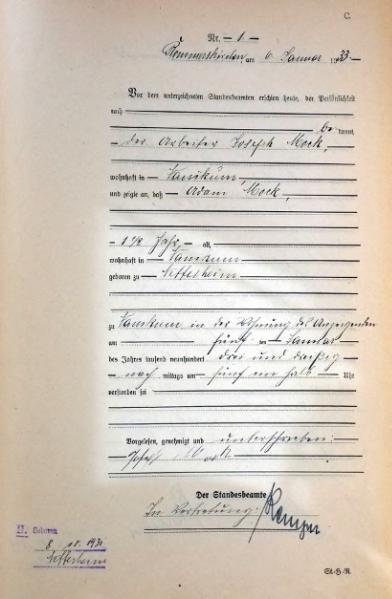 C.
Nr. 1
Rommerskirchen, am 6. Januar 1933
Vor dem unterzeichneten Standesbeamten erschien heute, der Persönlichkeit
nach
be kannt,
der Arbeiter Joseph Mock,
wohnhaft in Vanikum,
und zeigte an, daß Adam Mock,
Jahr, alt,
wohnhaft in Vanikum
geboren zu
zu Vanikum in der Wohnung des Anzeigenden
am fünf ten Januar
des Jahres tausend neunhundert drei und dreißig
nach mittags um fünf ein halb Uhr
verstorben sei
Vorgelesen, genehmigt und unterschrieben:
Josef Mock
Der Standesbeamte
In Vertretung:
Geboren
St. B. R.